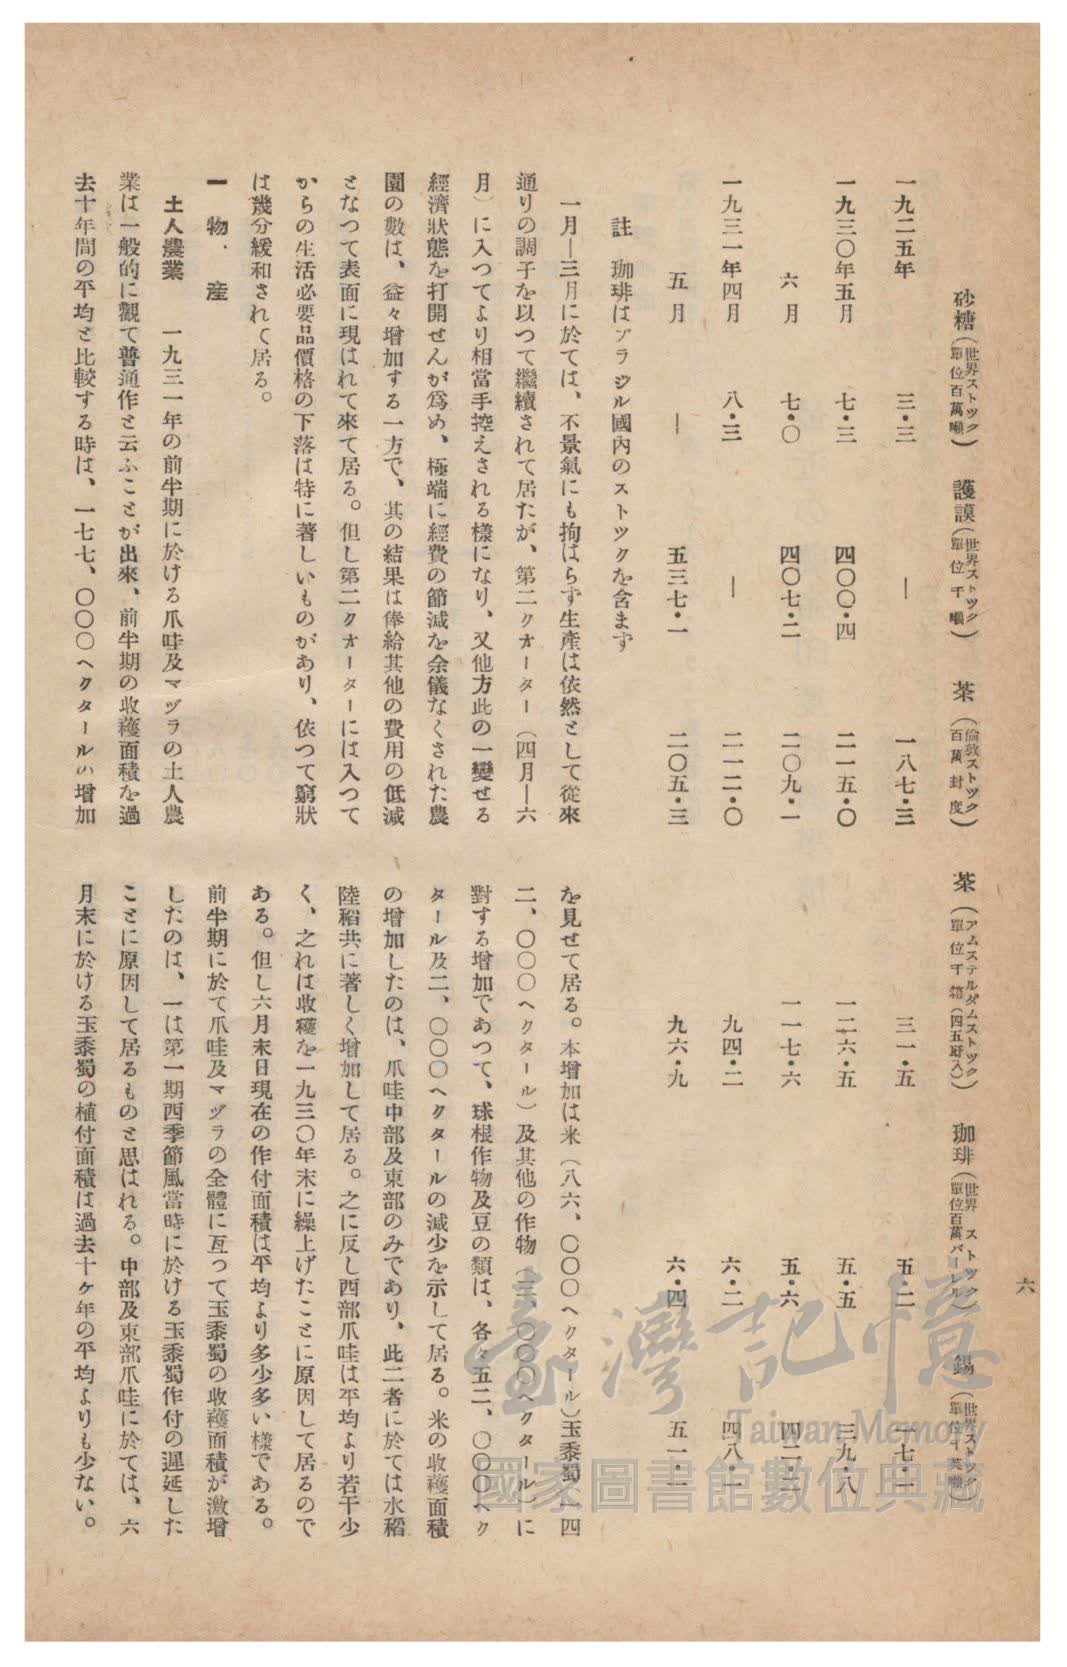 六
砂糖(世界ストツク單位百萬噸) 護謨(世界ストツク單位千噸) 茶(倫敦ストツク百萬封度) 茶(アムステルダムストツク單位千箱(四五瓩入)) 珈琲(世界ストツク單位百萬バーレル) 錫(世界ストツク單位千英噸)
一九二五年 三・三 — 一八七・三 三一・五 五・二 一七・一
一九三〇年五月 七・三 四〇〇・四 二一五・〇 一二六・五 五・五 三九・八
六月 七・〇 四〇七・二 二〇九・一 一一七・六 五・六 四二・二
一九三一年四月 八・三 — 二一二・〇 九四・二 六・二 四八・一
五月 — 五三七・一 二〇五・三 九六・九 六・四 五一・一
註 珈琲はブラジル國內のストツクを含まず
一月—三月に於ては、不景氣にも拘はらず生產は依然として從來
通りの調子を以つて繼續されて居たが、第二クオーター(四月—六
月)に入つてより相當手控えされる樣になり、又他方此の一變せる
經濟狀態を打開せんが爲め、極端に經費の節減を余儀なくされた農
園の數は、益々增加する一方で、其の結果は俸給其他の費用の低減
となつて表面に現はれて來て居る。但し第二クオーターには入つて
からの生活必要品價格の下落は特に著しいものがあり、依つて窮狀
は幾分緩和されて居る。
一 物. 產
土人農業 一九三一年の前半期に於ける爪哇及マヅラの土人農
業は一般的に觀て普通作と云ふことが出來、前半期の收穫面積を過
去十年間の平均と比較する時は、一七七、〇〇〇ヘクタールの增加
を見せて居る。本增加は米(八六、〇〇〇ヘクタール)玉黍蜀(四
二、〇〇〇ヘクタール)及其他の作物(三、〇〇〇ヘクタール)に
對する增加であつて、球根作物及豆の類は、各々五二、〇〇〇ヘク
タール及二、〇〇〇ヘクタールの減少を示して居る。米の收穫面積
の增加したのは、爪哇中部及東部のみであり、此二者に於ては水稻
陸稻共に著しく增加して居る。之に反し西部爪哇は平均より若干少
く、之れは收穫を一九三〇年末に繰上げたことに原因して居るので
ある。但し六月末日現在の作付面積は平均より多少多い樣である。
前半期に於て爪哇及マヅラの全體に亙って玉黍蜀の收穫面積が激增
したのは、一は第一期西季節風當時に於ける玉黍蜀作付の遲延した
ことに原因して居るものと思はれる。中部及東部爪哇に於ては、六
月末に於ける玉黍蜀の植付面積は過去十ヶ年の平均よりも少ない。
臺灣記憶
Taiwan Memory
國家圖書館數位典藏